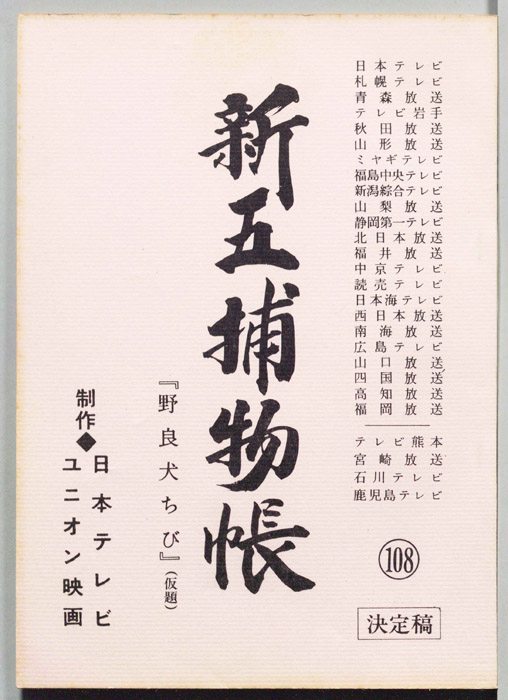 日本テレビ
札幌テレビ
青森放送
テレビ岩手
秋田放送
山形放送
ミヤギテレビ
福島中央テレビ
新潟綜合テレビ
山梨放送
静岡第一テレビ
北日本放送
福井放送
中京テレビ
読売テレビ
日本海テレビ
西日本放送
南海放送
広島テレビ
山口放送
四国放送
高知放送
福岡放送
テレビ熊本
宮崎放送
石川テレビ
鹿児島テレビ
108
決定稿
新五捕物帳
『野良犬ちび』(仮題)
制作◆日本テレビ
ユニオン映画